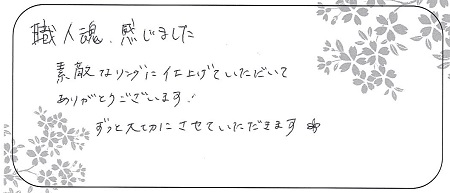 職人魂、感じました
素敵なリングに仕上げていただいて
ありがとうございます!
ずっと大切にさせていただきます